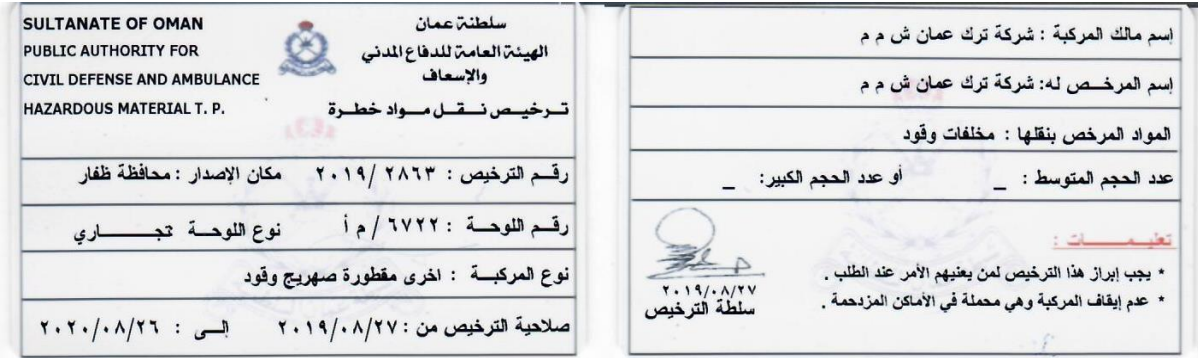 SULTANATE OF OMAN
PUBLIC AUTHORITY FOR
CIVIL DEFENSE AND AMBULANCE
HAZARDOUS MATERIAL T. P.
سلطنة عمان
الهيئة العامة للدفاع المدني
والإسعاف
ترخيص نقل مواد خطرة
رقم الترخيص : ٢٨٦٣ /٢٠١٩ مكان الإصدار : محافظة ظفار
رقم اللوحة : ٦٧٢٢ / م أ نوع اللوحة تجاري
نوع المركبة : اخرى مقطورة صهريج وقود
صلاحية الترخيص من : ٢٠١٩/٠٨/٢٧ الى : ٢٠٢٠/٠٨/٢٦
إسم مالك المركبة : شركة ترك عمان ش م م
إسم المرخص له: شركة ترك عمان ش م م
المواد المرخص بنقلها : مخلفات وقود
عدد الحجم المتوسط : _ أو عدد الحجم الكبير: _
تعليمات :
* يجب إبراز هذا الترخيص لمن يعنيهم الأمر عند الطلب .
* عدم إيقاف المركبة وهي محملة في الأماكن المزدحمة .
٢٠١٩/٠٨/٢٧
سلطة الترخيص